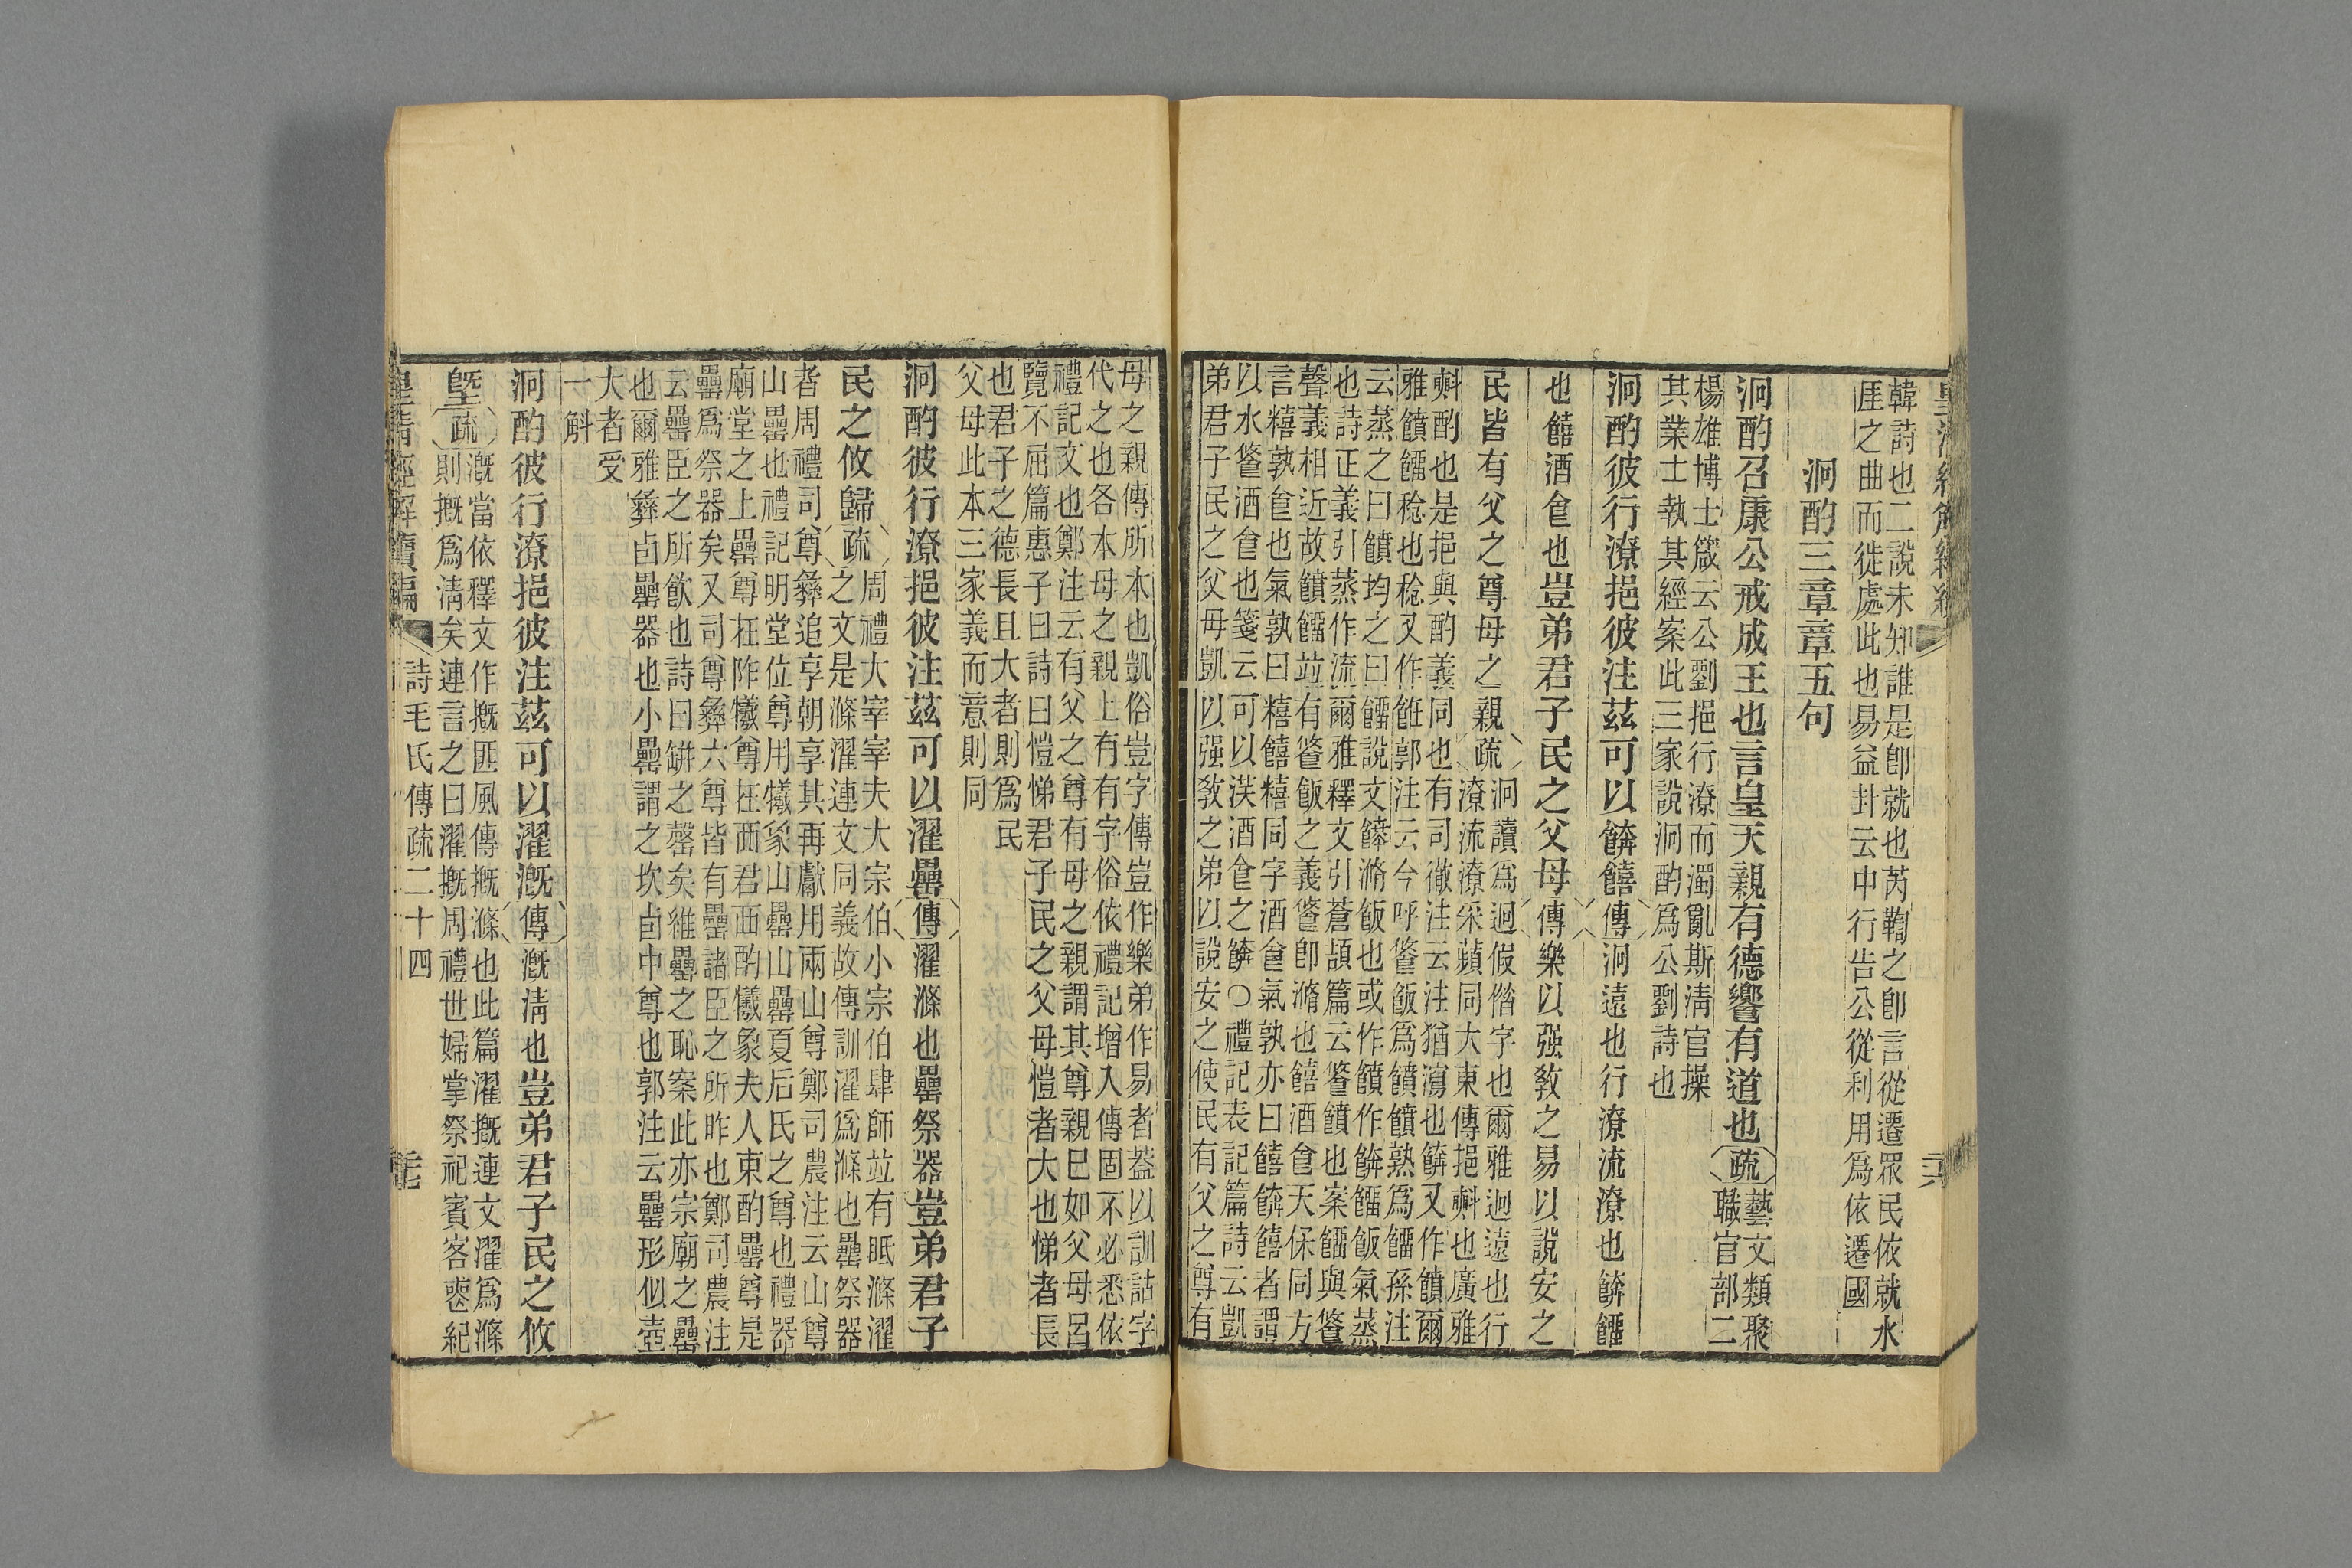 韓詩也二說未知誰是卽就也芮鞫之卽言從遷眾民依就水
厓之曲而徙處此也易益封云中行告公從利用爲依遷國
泂酌三章章五句
泂酌召康公戒成王也言皇天親有德饗有道也疏藝文類聚
職官部二
楊雄博士箴云公劉挹行潦而濁亂斯淸官操
其業士執其經案此三家說泂酌爲公劉詩也
泂酌彼行潦挹彼注茲可以餴饎傳泂遠也行潦流潦也餴餾
也饎酒食也豈弟君子民之父母傳樂以强敎之易以說安之
民皆有父之尊母之親疏泂讀爲迥假借字也爾雅迥遠也行
潦流潦采蘋同大東傳挹㪺也廣雅
㪺酌也是挹與酌義同也有司徹注云注猶瀉也餴又作饙爾
雅饙餾稔也稔又作飪郭注云今呼餐飯爲饙饙熟爲餾孫注
云蒸之曰饙均之曰餾說文餴滫飯也或作饙作餴餾飯氣蒸
也詩正義引蒸作流爾雅釋文引蒼頡篇云餐饙也案餾與餐
聲義相近故饙餾竝有餐飯之義餐卽滫也饎酒食天保同方
言糦孰食也氣孰曰糦饎糦同字酒食氣孰亦曰饎餴饎者謂
以水餐酒食也箋云可以沃酒食之餴○禮記表記篇詩云凱
弟君子民之父母凱以强敎之弟以說安之使民有父之尊有
母之親傳所本也凱俗豈字傳豈作樂弟作易者葢以訓詁字
代之也各本母之親上有有字俗依禮記增入傳固不必悉依
禮記文也鄭注云有父之尊有母之親謂其尊親已如父母呂
覽不屈篇惠子曰詩曰愷悌君子民之父母愷者大也悌者長
也君子之德長且大者則爲民
父母此本三家義而意則同
泂酌彼行潦挹彼注茲可以濯罍傳濯滌也罍祭器豈弟君子
民之攸歸疏周禮大宰宰夫大宗伯小宗伯肆師竝有眂滌濯
之文是滌濯連文同義故傳訓濯爲滌也罍祭器
者周禮司尊彝追享朝享其再獻用兩山尊鄭司農注云山尊
山罍也禮記明堂位尊用犧象山罍山罍夏后氏之尊也禮器
廟堂之上罍尊在阼犧尊在西君西酌犧象夫人東酌罍尊是
罍爲祭器矣又司尊彝六尊皆有罍諸臣之所昨也鄭司農注
云罍臣之所飮也詩曰缾之罄矣維罍之恥案此亦宗廟之罍
也爾雅彝卣罍器也小罍謂之坎卣中尊也郭注云罍形似壺
大者受
一斛
泂酌彼行潦挹彼注茲可以濯漑傳漑淸也豈弟君子民之攸
墍疏漑當依釋文作摡匪風傳摡滌也此篇濯摡連文濯爲滌
則摡爲淸矣連言之曰濯摡周禮世婦掌祭祀賓客喪紀
皇淸經解續編 詩毛氏傳疏二十四